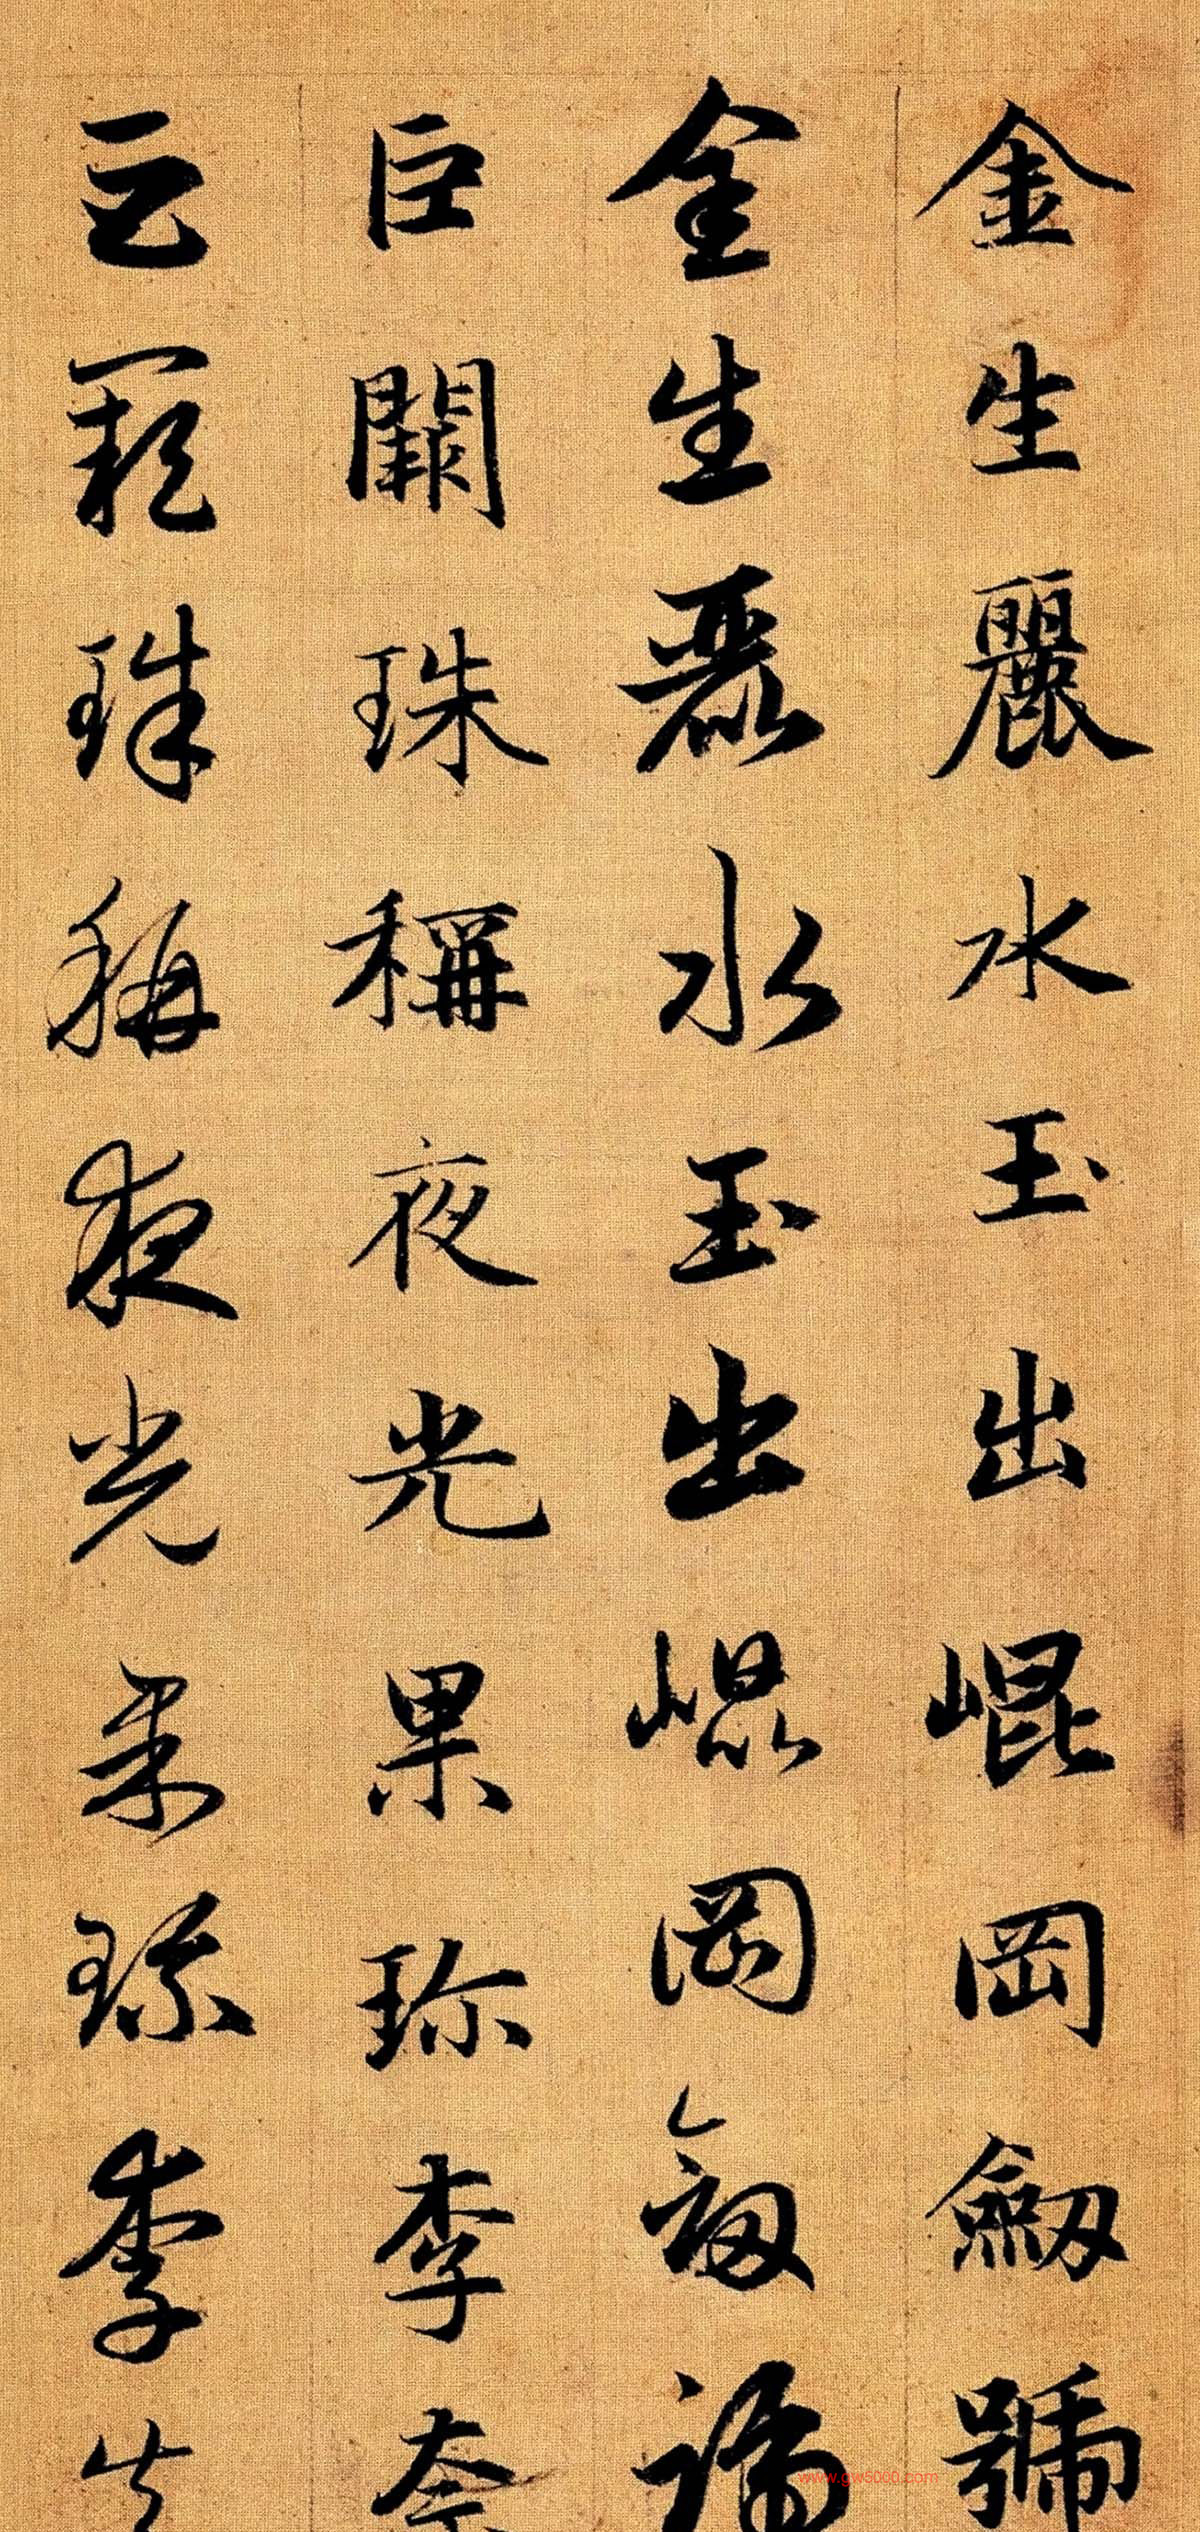 金生麗水玉出崐岡劒號
金生麗水玉出崐岡劒號
巨闕珠稱夜光果珎李柰
巨闕珠稱夜光果珎李
www.gw5000.com